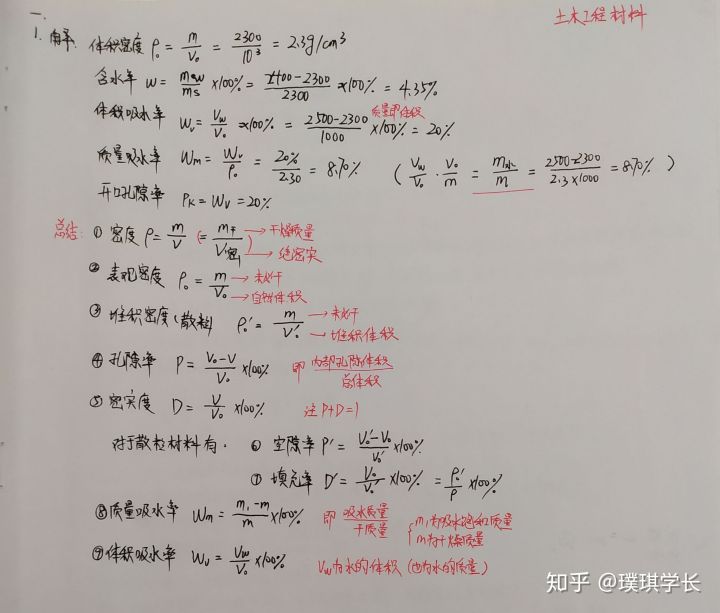 土木工程材料
一.
1. 解: 体积密度 ρ₀ = m/V₀ = 2300/10³ = 2.3g/cm³
含水率 W = m水/ms ×100% = (2400-2300)/2300 ×100% = 4.35%
体积吸水率 Wv = Vw/V₀ ×100% = (2500-2300)/1000 ×100% = 20% 质量即体积
质量吸水率 Wm = Wv/ρ₀ = 20%/2.30 = 8.70% ( Vw/V₀ · V₀/m = m水/m = (2500-2300)/(2.3×1000) = 8.70% )
开口孔隙率 PK = WV = 20%
总结: ① 密度 ρ = m/V (= m干/V密) → 干燥质量 → 绝密实
② 表观密度 ρ₀ = m/V₀ → 未必干 → 自然体积
③ 堆积密度(散粒) ρ₀′ = m/V₀′ → 未必干 → 堆积体积
④ 孔隙率 P = (V₀-V)/V₀ ×100% 即 内部孔隙体积/总体积
⑤ 密实度 D = V/V₀ ×100% 注 P+D=1
对于散粒材料有. ⑥ 空隙率 P′ = (V₀′-V₀)/V₀′ ×100%
⑦ 填充率 D′ = V₀/V₀′ ×100% = ρ₀′/ρ ×100%
⑧ 质量吸水率 Wm = (m₁-m)/m ×100% 即 吸水质量/干质量 { m₁为吸水饱和质量 m为干燥质量
⑨ 体积吸水率 Wv = Vw/V₀ ×100% Vw为水的体积(也为水的质量)
知乎 @璞琪学长